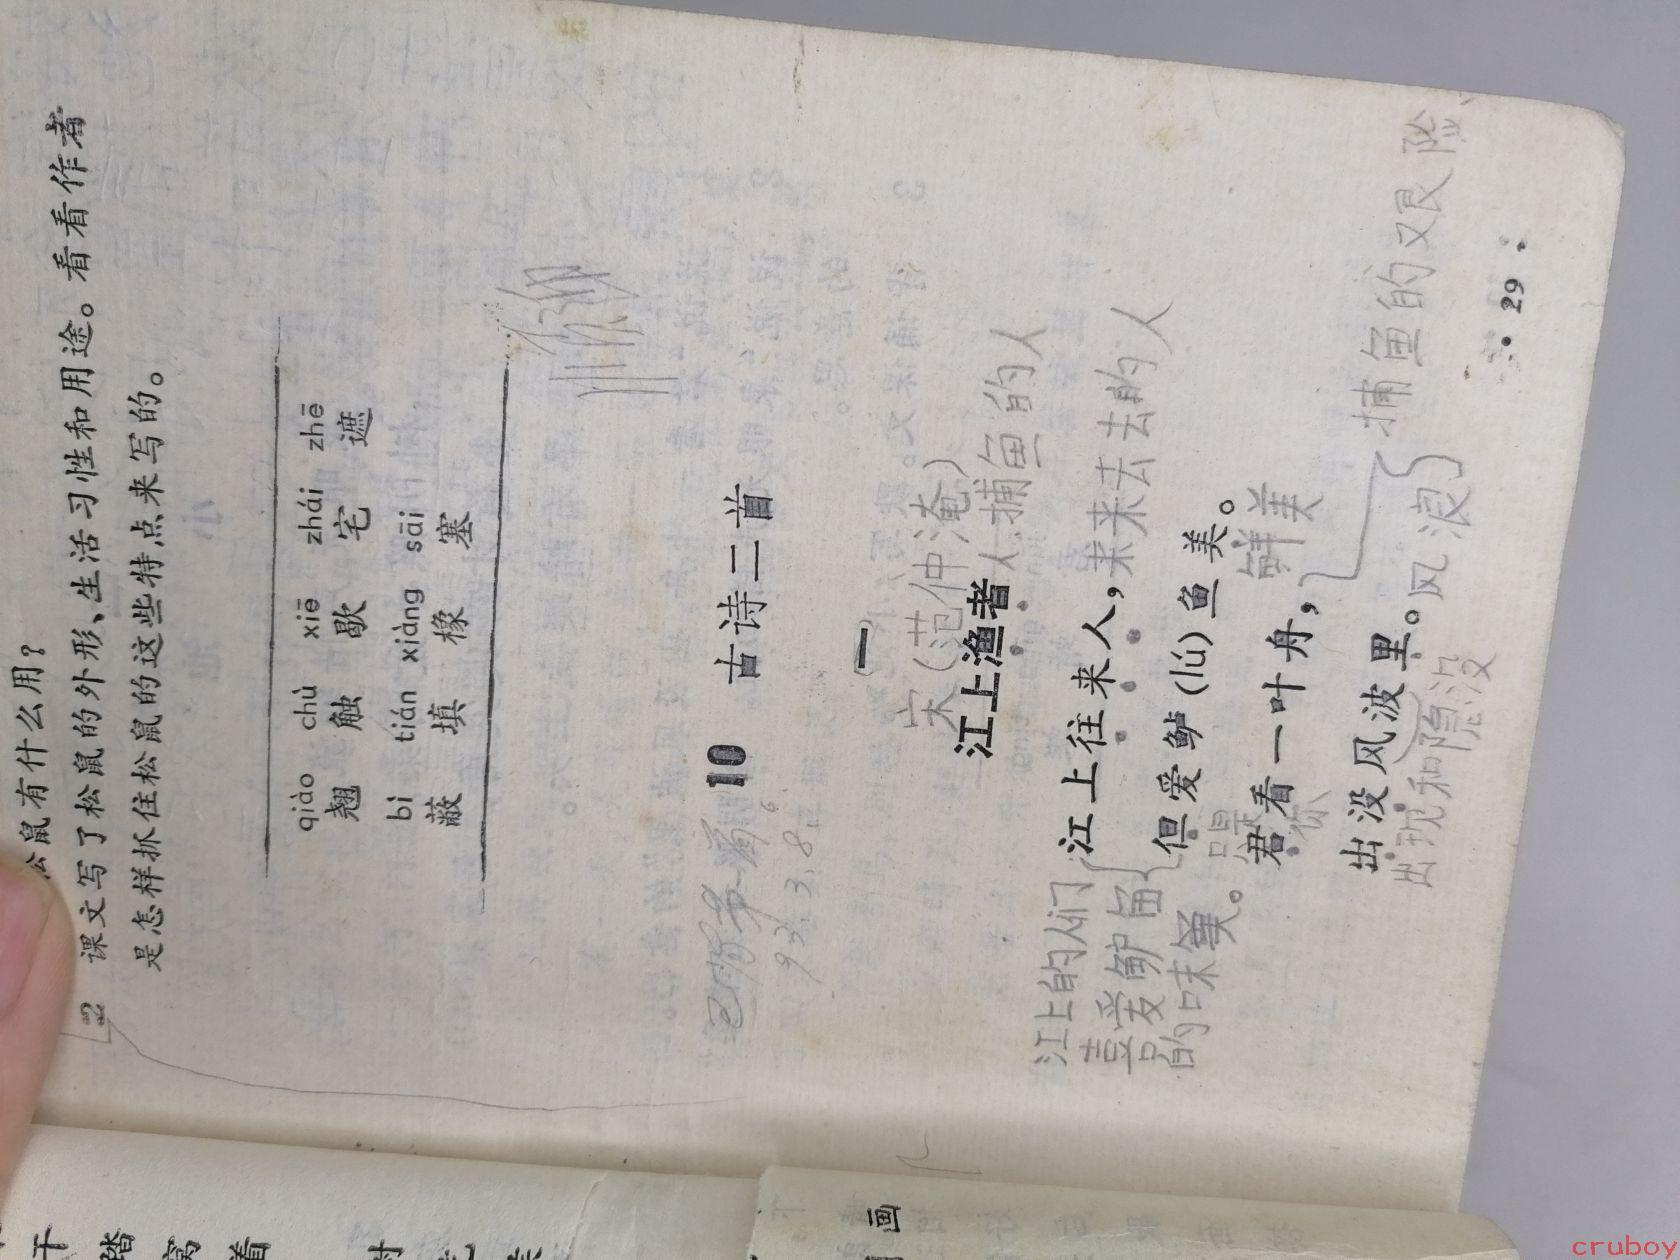 松鼠有什么用?
2 课文写了松鼠的外形、生活习性和用途。看看作者
是怎样抓住松鼠的这些特点来写的。
qiào chù xiē zhái zhē
翘 触 歇 宅 遮
bì tián xiàng sāi
蔽 填 橡 塞
10 古诗二首
92.3.8日
(一)
宋(范仲淹)
江上渔者 人.捕鱼的人
江上往来人, 来来去去的人
江上的人们
喜爱鲈鱼
的味美。
但爱鲈(lú)鱼美。
只是 鲜美
君看一叶舟,
你
捕鱼的艰险
出没风波里。 风浪
出现和隐没
• 29 •
干
踏
窝
着
画
cruboy